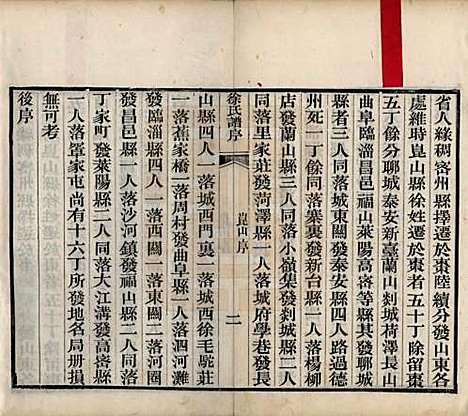 省人綠稠密州縣擇遷於棗陸續分發山東各
處維時崑山縣徐姓遷於棗者五十丁除留棗
五丁餘分聊城泰安新臺蘭山剡城荷澤長山
曲阜臨淄昌邑福山萊陽高密等縣其發聊城
縣者三人同落城東關發泰安縣四人路過德
州死一人餘同落寨裏發新台縣一人落楊柳
店發蘭山縣三人同落小嶺集發剡城縣一人
同落里家莊發菏澤縣一人落城府學巷發長
徐氏譜序
崑山序
二
山縣四人一落城西門裏一落城西徐毛駝莊
一落蕉家橋一落周村發曲阜縣一人落泗河灘
發臨淄縣四人一落西關一落東關二落城裏
發昌邑縣一人落沙河鎮發福山縣三人同落
丁家町發萊陽縣二人同落大江溝發高密縣
一人落單家屯尚有十六丁所發地名局册損
無可考
後序